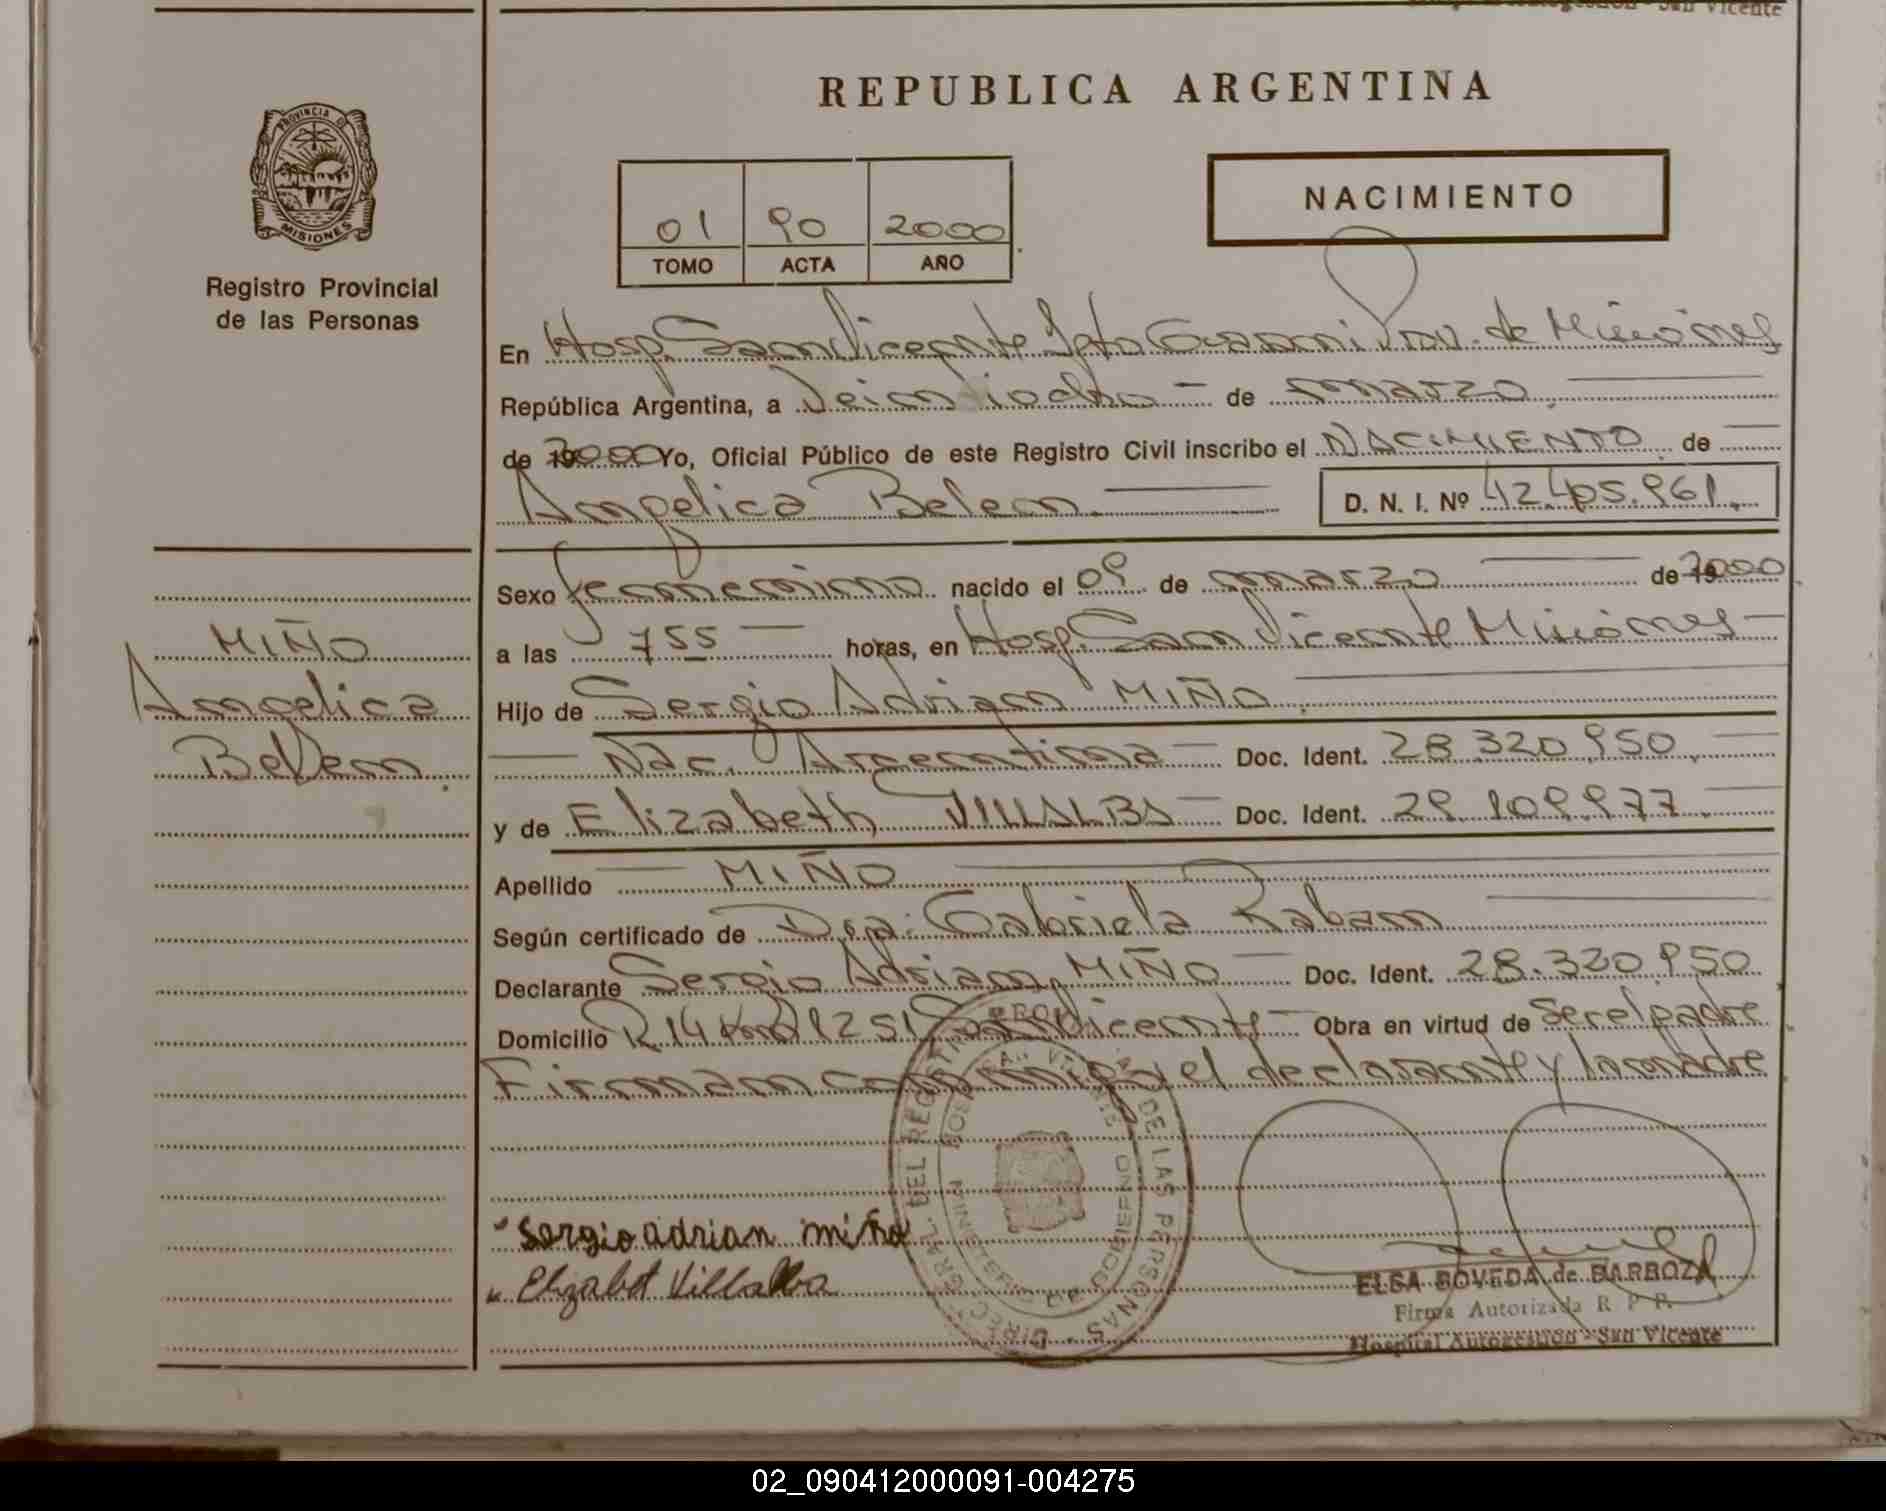 REPUBLICA ARGENTINA
PROVINCIA DE
MISIONES
Registro Provincial
de las Personas
01 90 2000
TOMO ACTA AÑO
NACIMIENTO
En Hosp. San Vicente Dpto Guarani Prov. de Misiones
República Argentina, a Veintiocho — de marzo
de 2000 Yo, Oficial Público de este Registro Civil inscribo el NACIMIENTO de
Angelica Belen D. N. I. Nº 42.405.961.
Sexo femenino nacido el 09 de marzo de 2000
a las 755 — horas, en Hosp. San Vicente Misiones —
Hijo de Sergio Adrian MIÑO
— Nac. Argentina — Doc. Ident. 28.320.950
y de Elizabeth VILLALBA — Doc. Ident. 29.109.977
Apellido — MIÑO
Según certificado de Dra: Gabriela Raban
Declarante Sergio Adrian MIÑO — Doc. Ident. 28.320.950
Domicilio R 14 Km 1251 San Vicente — Obra en virtud de ser el padre
Firman conmigo el declarante y la madre
MIÑO
Angelica
Belen.
Sergio adrian miño
Elizabet Villalba
DIREC. GRAL. DEL REGISTRO PROV. DE LAS PERSONAS
HOSPITAL SAN VICENTE
ELSA BOVEDA de BARBOZA
Firma Autorizada R P P.
Hospital Autogestión - San Vicente
02_090412000091-004275